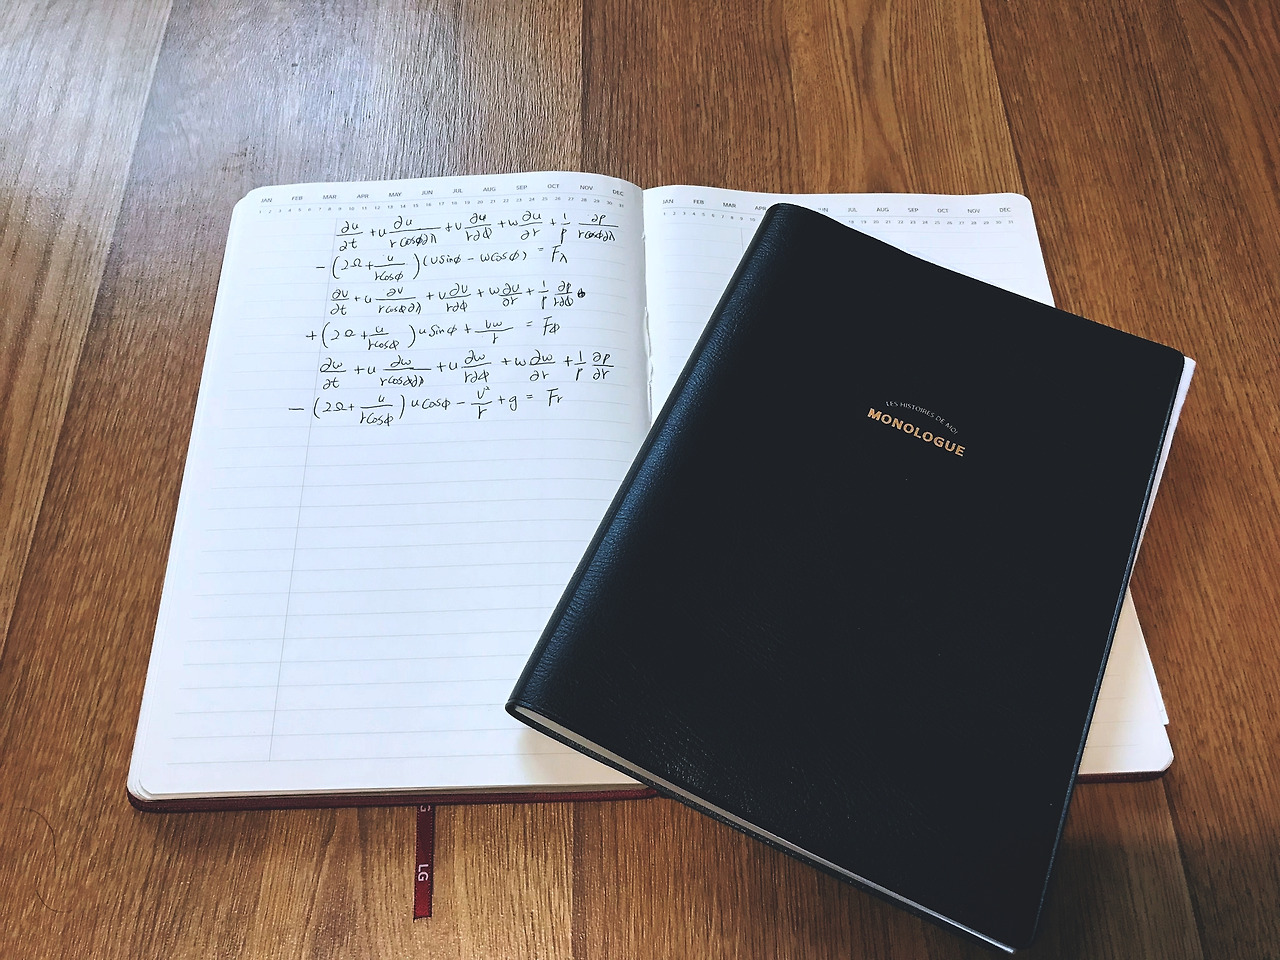 JAN FEB MAR APR MAY JUN JUL AUG SEP OCT NOV DEC
1 2 3 4 5 6 7 8 9 10 11 12 13 14 15 16 17 18 19 20 21 22 23 24 25 26 27 28 29 30 31
∂u/∂t + u ∂u/rcosφ∂λ + v ∂u/r∂φ + w ∂u/∂r + 1/ρ ∂p/rcosφ∂λ
− (2Ω + u/rcosφ)(vsinφ − wcosφ) = Fλ
∂v/∂t + u ∂v/rcosφ∂λ + v ∂v/r∂φ + w ∂v/∂r + 1/ρ ∂p/r∂φ
+ (2Ω + u/rcosφ) u sinφ + vw/r = Fφ
∂w/∂t + u ∂w/rcosφ∂λ + v ∂w/r∂φ + w ∂w/∂r + 1/ρ ∂p/∂r
− (2Ω + u/rcosφ) u cosφ − v²/r + g = Fr
JAN FEB MAR APR JUN JUL AUG SEP OCT NOV DEC
LES HISTOIRES DE MOI
MONOLOGUE
LG